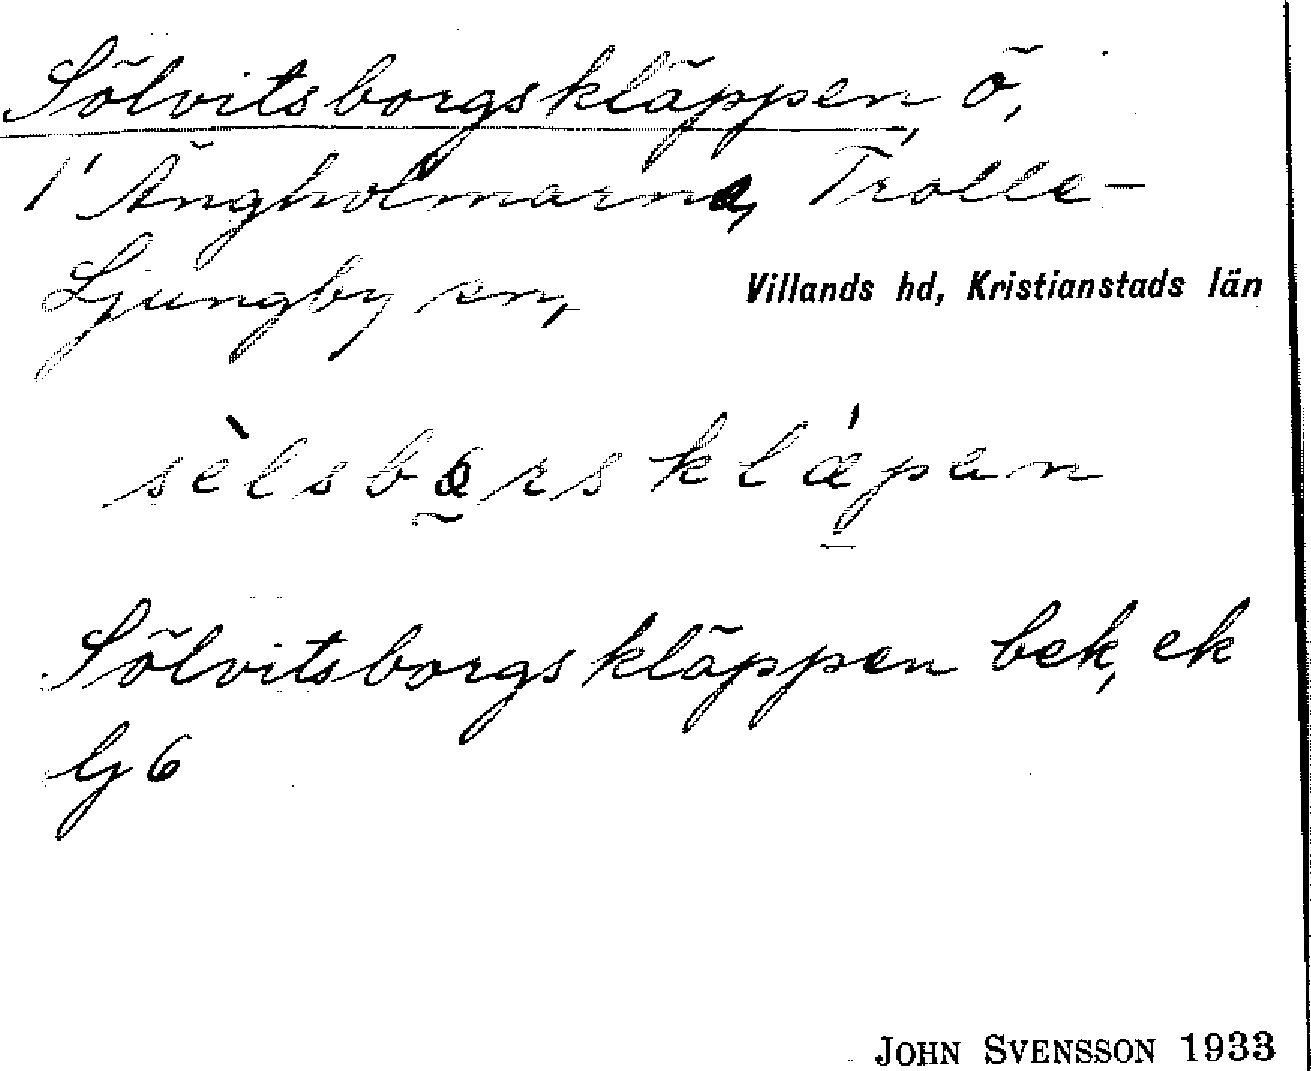 Sölvitsborgskläppen, ö,
i Ängholmarna, Trolle-
Ljungby sn, Villands hd, Kristianstads län
sèlsbǫrs klǽpen
Sölvitsborgskläppen bek, ek
G6
JOHN SVENSSON 1933